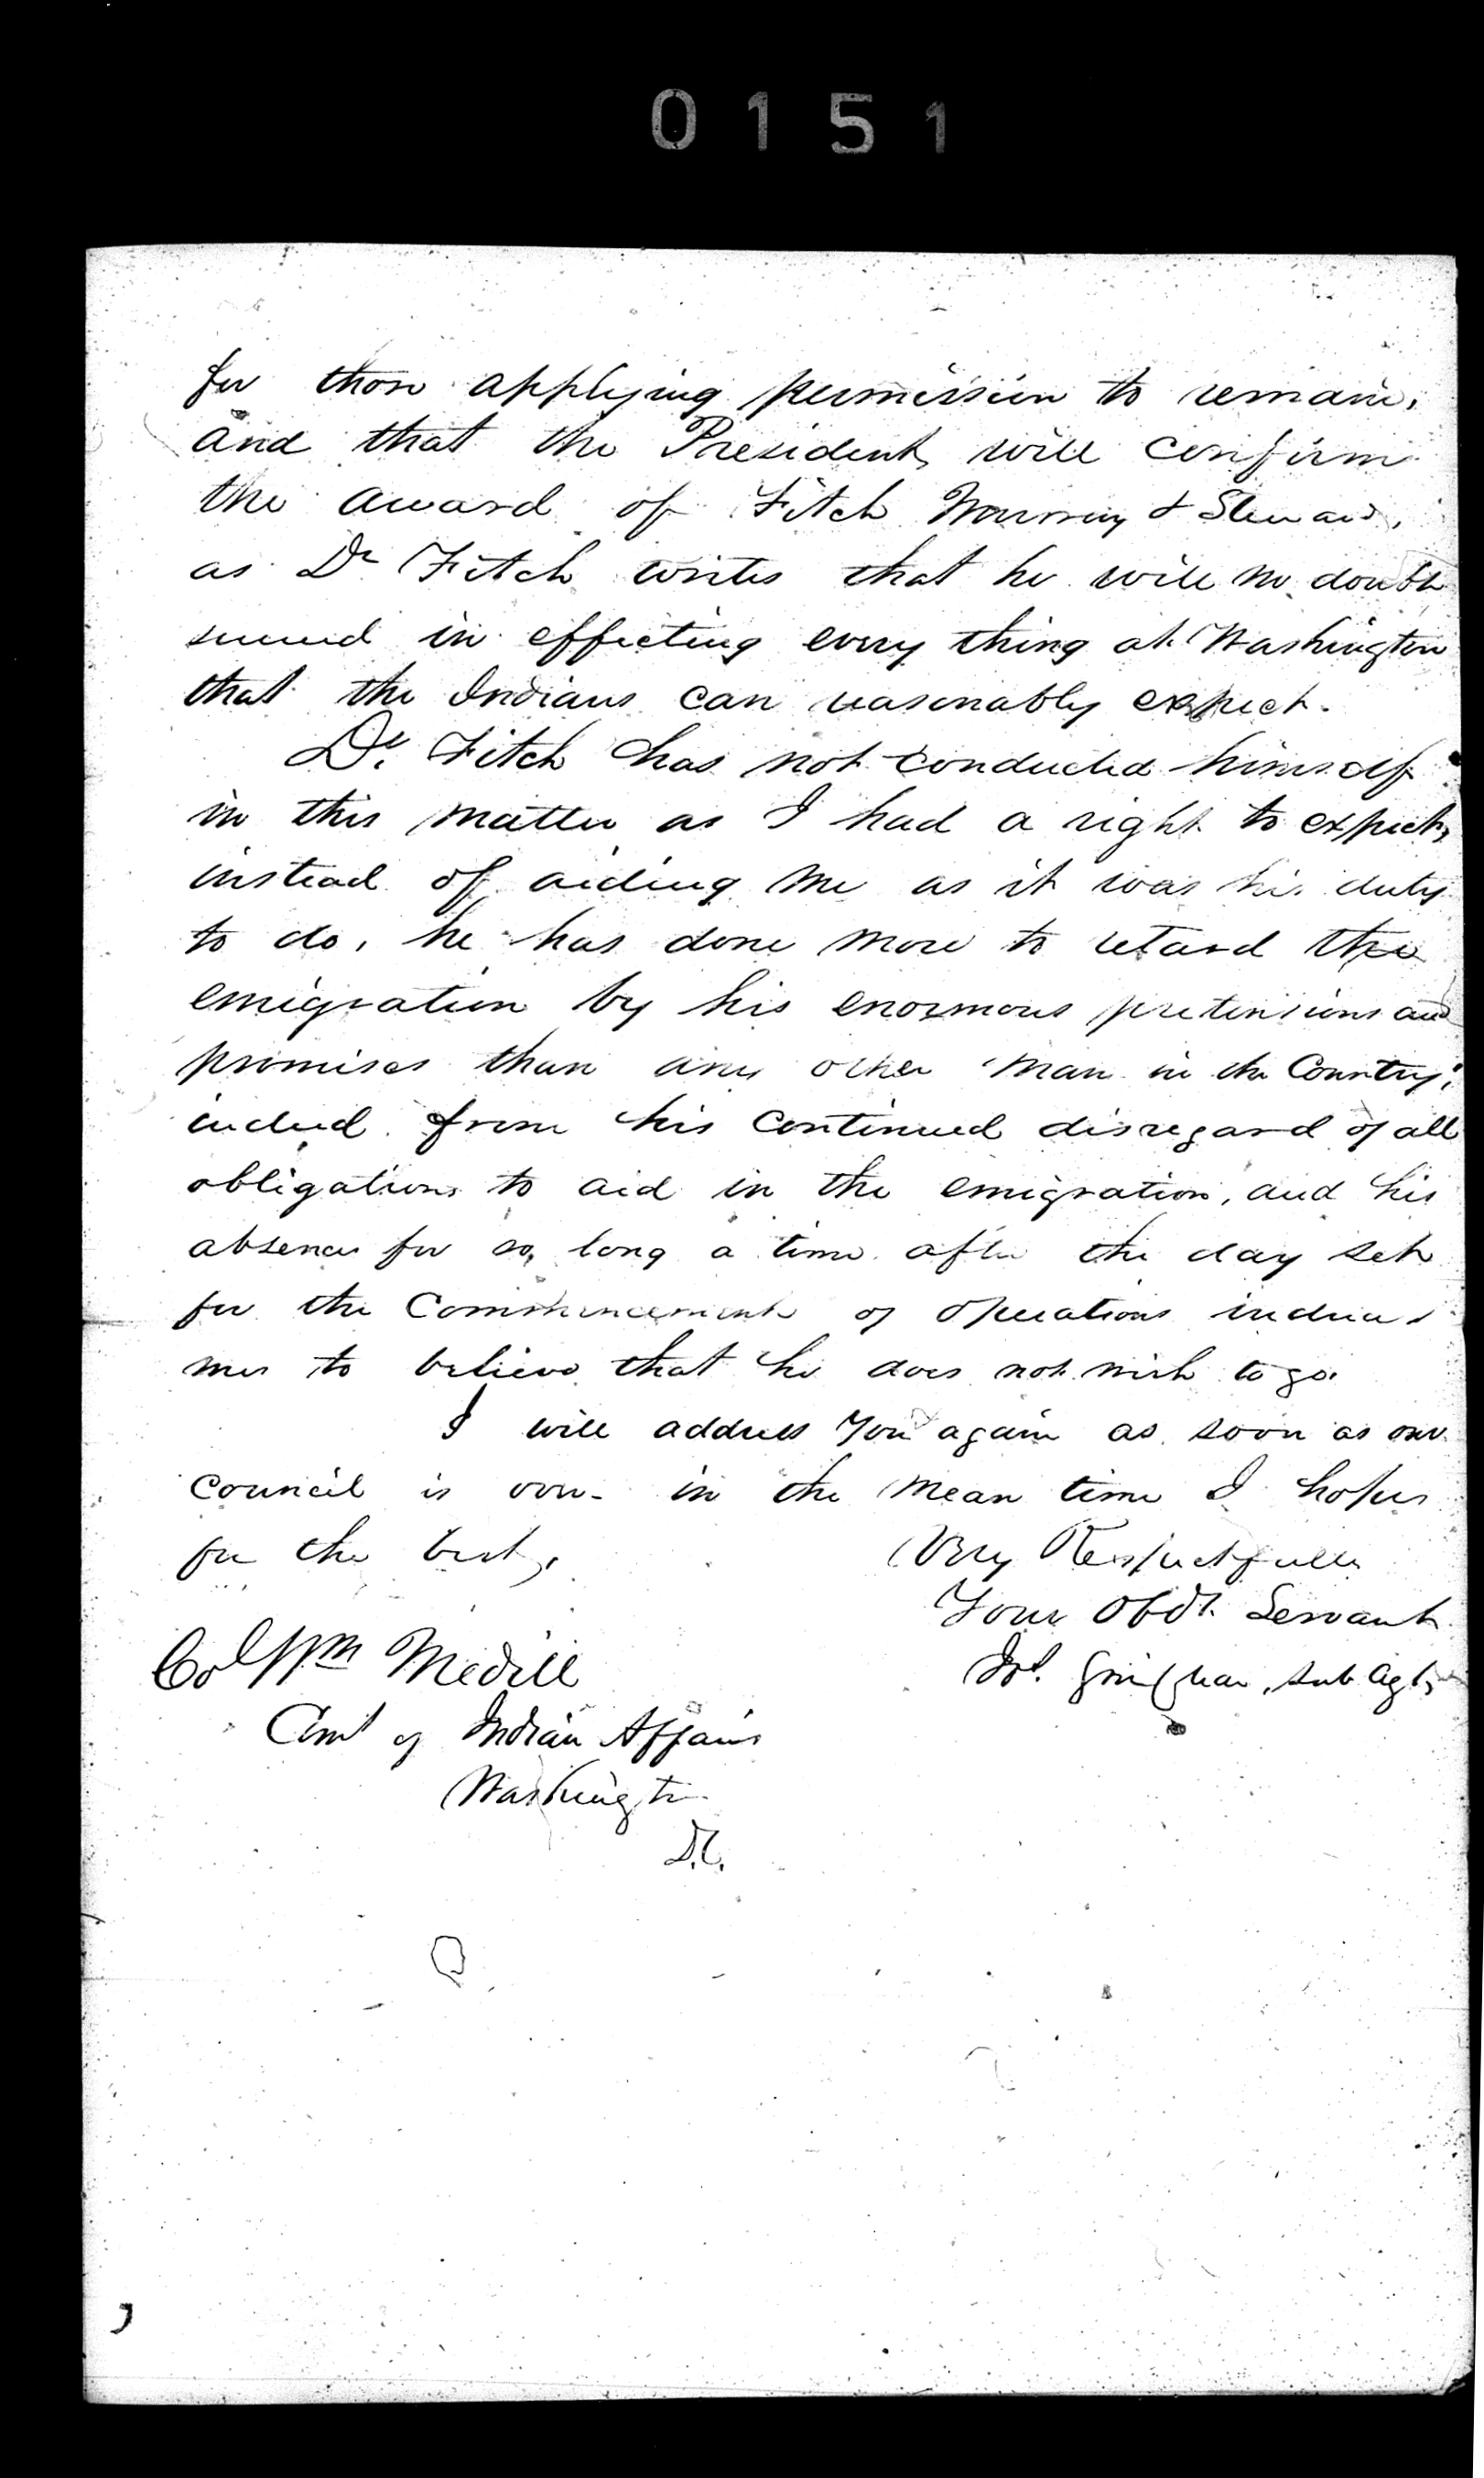 0151
for those applying permission to remain,
and that the President will confirm
the award of Fitch Murray & Steward,
as Dr Fitch writes that he will no doubt
succeed in effecting every thing at Washington
that the Indians can reasonably expect.
Dr. Fitch has not conducted himself
in this matter as I had a right to expect,
instead of aiding me as it was his duty
to do, he has done more to retard the
emigration by his enormous pretensions and
promises than any other man in the Country;
indeed from his continued disregard of all
obligations to aid in the emigration, and his
absence for so long a time after the day set
for the Commencement of operations induces
me to believe that he does not wish to go.
I will address you again as soon as our
Council is over - in the mean time I hope
for the best,
Very Respectfully
Your Obdt. Servant
Sub Agt,
Col Wm Medill
Comr of Indian Affairs
Washington
D.C.